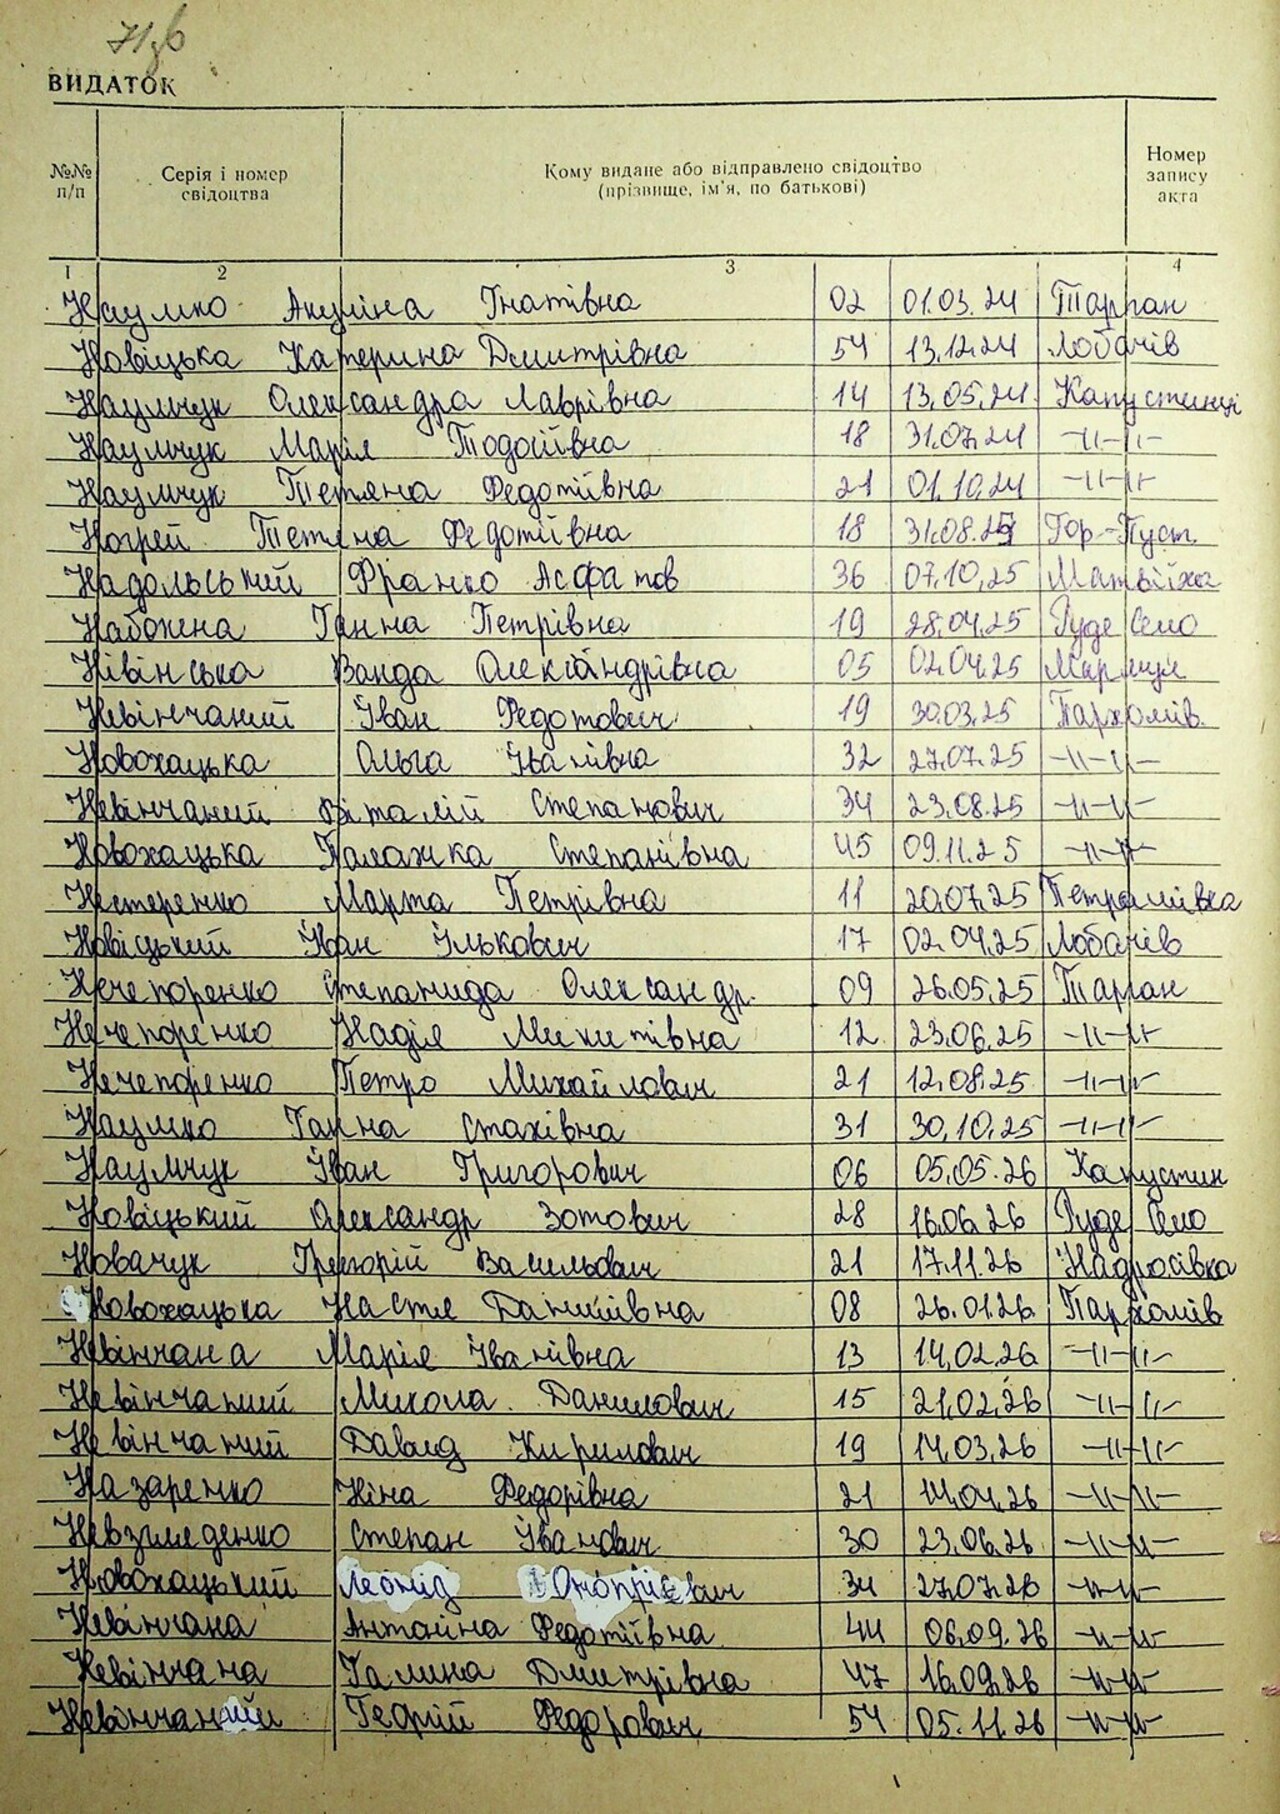 ВИДАТОК
№№ п/п
Серія і номер свідоцтва
Кому видане або відправлено свідоцтво (прізвище, ім'я, по батькові)
Номер запису акта
1 2 3 4
Наумко Акуліна Гнатівна 02 01.03.24 Тарган
Новіцька Катерина Дмитрівна 54 13.12.24 Лобачів
Наумчук Олександра Лаврівна 14 13.05.24 Капустинці
Наумчук Марія Тодоіївна 18 31.07.24 -//-//-
Наумчук Тетяна Федотіївна 21 01.10.24 -//-//-
Ногрей Тетяна Федотіївна 18 31.08.25 Гор-Пуст.
Надольський Франко Асфатов 36 07.10.25 Матвіїха
Набожена Ганна Петрівна 19 28.04.25 Руде Село
Нівінська Ванда Олександрівна 05 02.04.25
Невінчаний Іван Федотович 19 30.03.25 Пархомів.
Новохацька Ольга Іванівна 32 27.07.25 -//-//-
Невінчаний Віталій Степанович 34 23.08.25 -//-//-
Новохацька Палажка Степанівна 45 09.11.25 -//-//-
Нестеренко Марта Петрівна 11 20.07.25 Петрашівка
Новіцький Іван Ількович 17 02.04.25 Лобачів
Нечепоренко Степанида Олександр. 09 26.05.25 Тарган
Нечепоренко Надія Микитівна 12 23.06.25 -//-//-
Нечепоренко Петро Михайлович 21 12.08.25 -//-//-
Наумко Ганна Стахівна 31 30.10.25 -//-//-
Наумчук Іван Григорович 06 05.05.26 Капустин
Новіцький Олександр Зотович 28 16.06.26 Руде Село
Новачук Григорій Васильович 21 17.11.26 Надросівка
Новохацька Настя Данилівна 08 26.01.26. Пархомів
Невінчана Марія Іванівна 13 14.02.26 -//-//-
Невінчаний Микола Данилович 15 21.02.26 -//-//-
Невінчаний Давид Кирилович 19 14.03.26 -//-//-
Назаренко Ніна Федорівна 21 14.04.26 -//-//-
Степан Іванович 30 23.06.26 -//-//-
Новохацький Леонід Онопрієвич 34 27.07.26 -//-//-
Невінчана Антоніна Федотіївна 44 06.09.26 -//-//-
Невінчана Галина Дмитрівна 47 16.09.26 -//-//-
Невінчаний Георгій Федорович 54 05.11.26 -//-//-